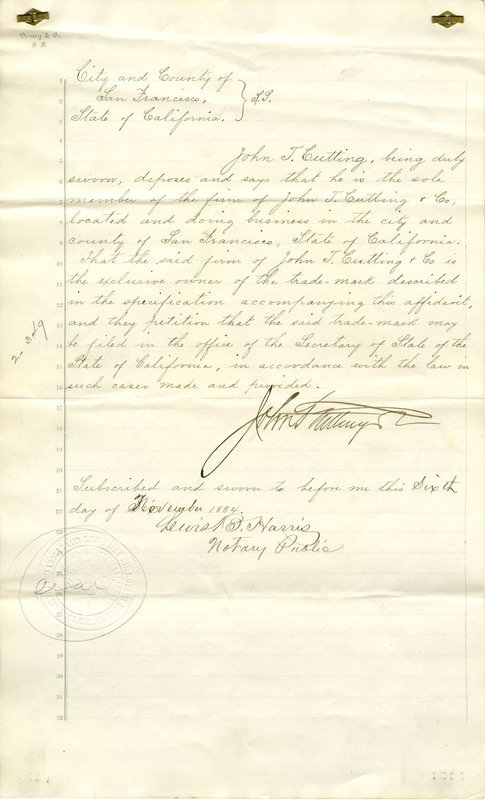 City and County of
San Francisco,
State of California.
S.S.
John T. Cutting, being duly
sworn, deposes and says that he is the sole
member of the firm of John T. Cutting & Co,
located and doing business in the city and
county of San Francisco, State of California.
That the said firm of John T. Cutting & Co is
the exclusive owner of the trade-mark described
in the specification accompanying this affidavit,
and they petition that the said trade-mark may
be filed in the office of the Secretary of State of the
State of California, in accordance with the law in
such cases made and provided.
John T Cutting
Subscribed and sworn to before me this Sixth
day of November 1884.
Lewis B. Harris
Notary Public
1
2
3
4
5
6
7
8
9
10
11
12
13
14
15
16
17
18
19
20
21
22
23
24
25
26
27
28
29
30
31
32